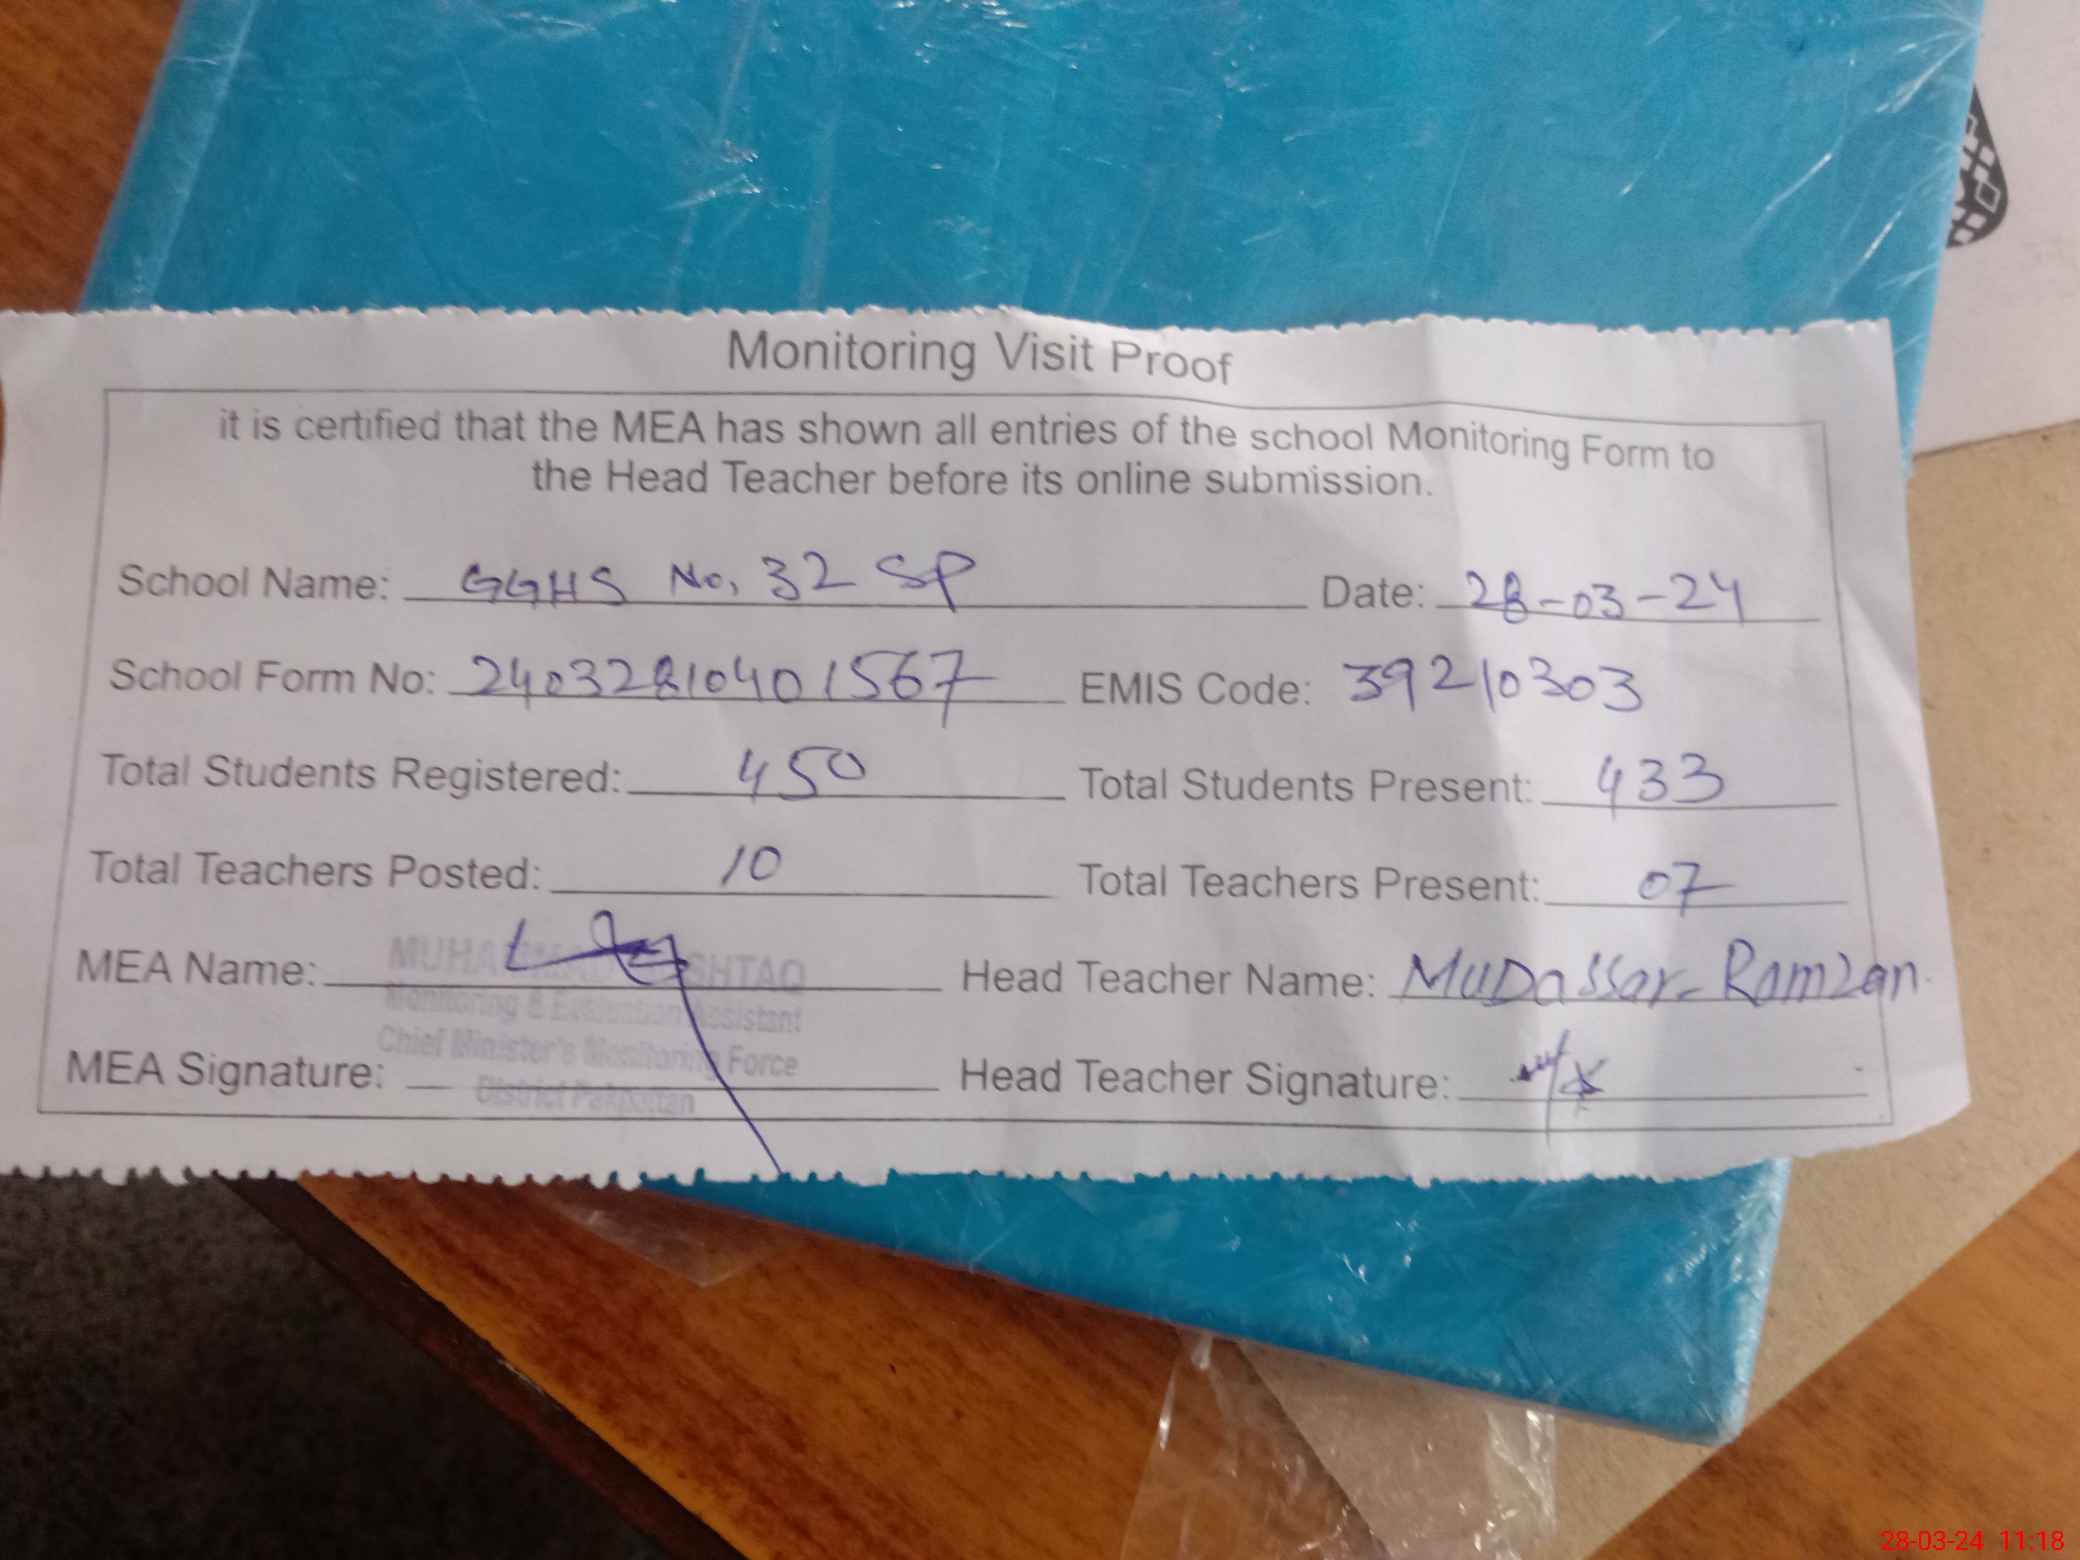 Monitoring Visit Proof
it is certified that the MEA has shown all entries of the school Monitoring Form to
the Head Teacher before its online submission.
School Name: GGHS No, 32 SP Date: 28-03-24
School Form No: 24032810401567 EMIS Code: 39210303
Total Students Registered: 450 Total Students Present: 433
Total Teachers Posted: 10 Total Teachers Present: 07
MEA Name: Head Teacher Name: Mudassar Ramzan
Monitoring & Evaluation Assistant
Chief Minister's Monitoring Force
MEA Signature: Head Teacher Signature:
District Pakpattan
28-03-24 11:18